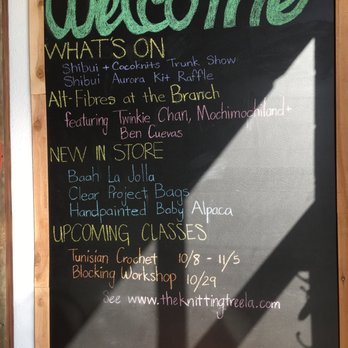 Welcome
WHAT'S ON
Shibui + Cocoknits Trunk Show
Shibui Aurora Kit Raffle
Alt-Fibres at the Branch
featuring Twinkie Chan, Mochimochiland +
Ben Cuevas
NEW IN STORE
Baah La Jolla
Clear Project Bags
Handpainted Baby Alpaca
UPCOMING CLASSES
Tunisian Crochet 10/8 - 11/5
Blocking Workshop 10/29
See www.theknittingtreela.com